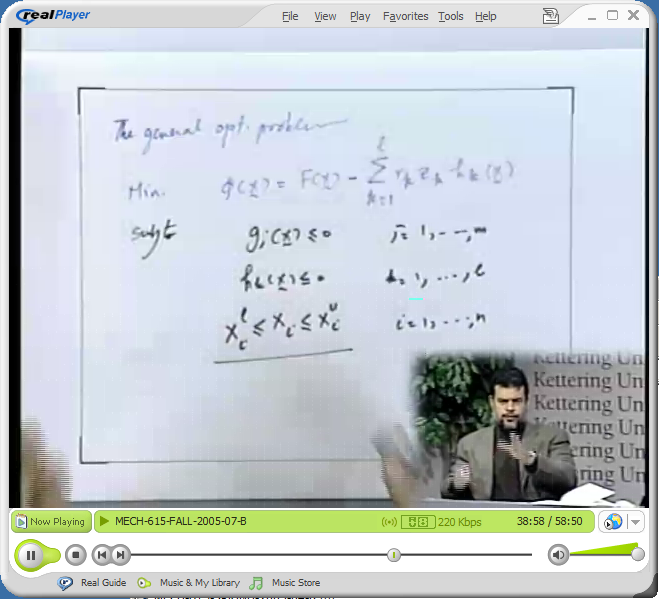 realPlayer
File View Play Favorites Tools Help
The general opt. problem
Min. φ(x) = F(x) - Σ_{k=1}^{l} r_k z_k h_k(x)
subjt
g_j(x) ≤ 0 j = 1, ---, m
h_k(x) ≤ 0 k = 1, ..., l
x_i^l ≤ x_i ≤ x_i^u i = 1, ..., n
Kettering Un
Kettering Un
Kettering Un
Kettering Un
ttering Un
ering Un
ring Un
Now Playing MECH-615-FALL-2005-07-B 220 Kbps 38:58 / 58:50
Real Guide Music & My Library Music Store